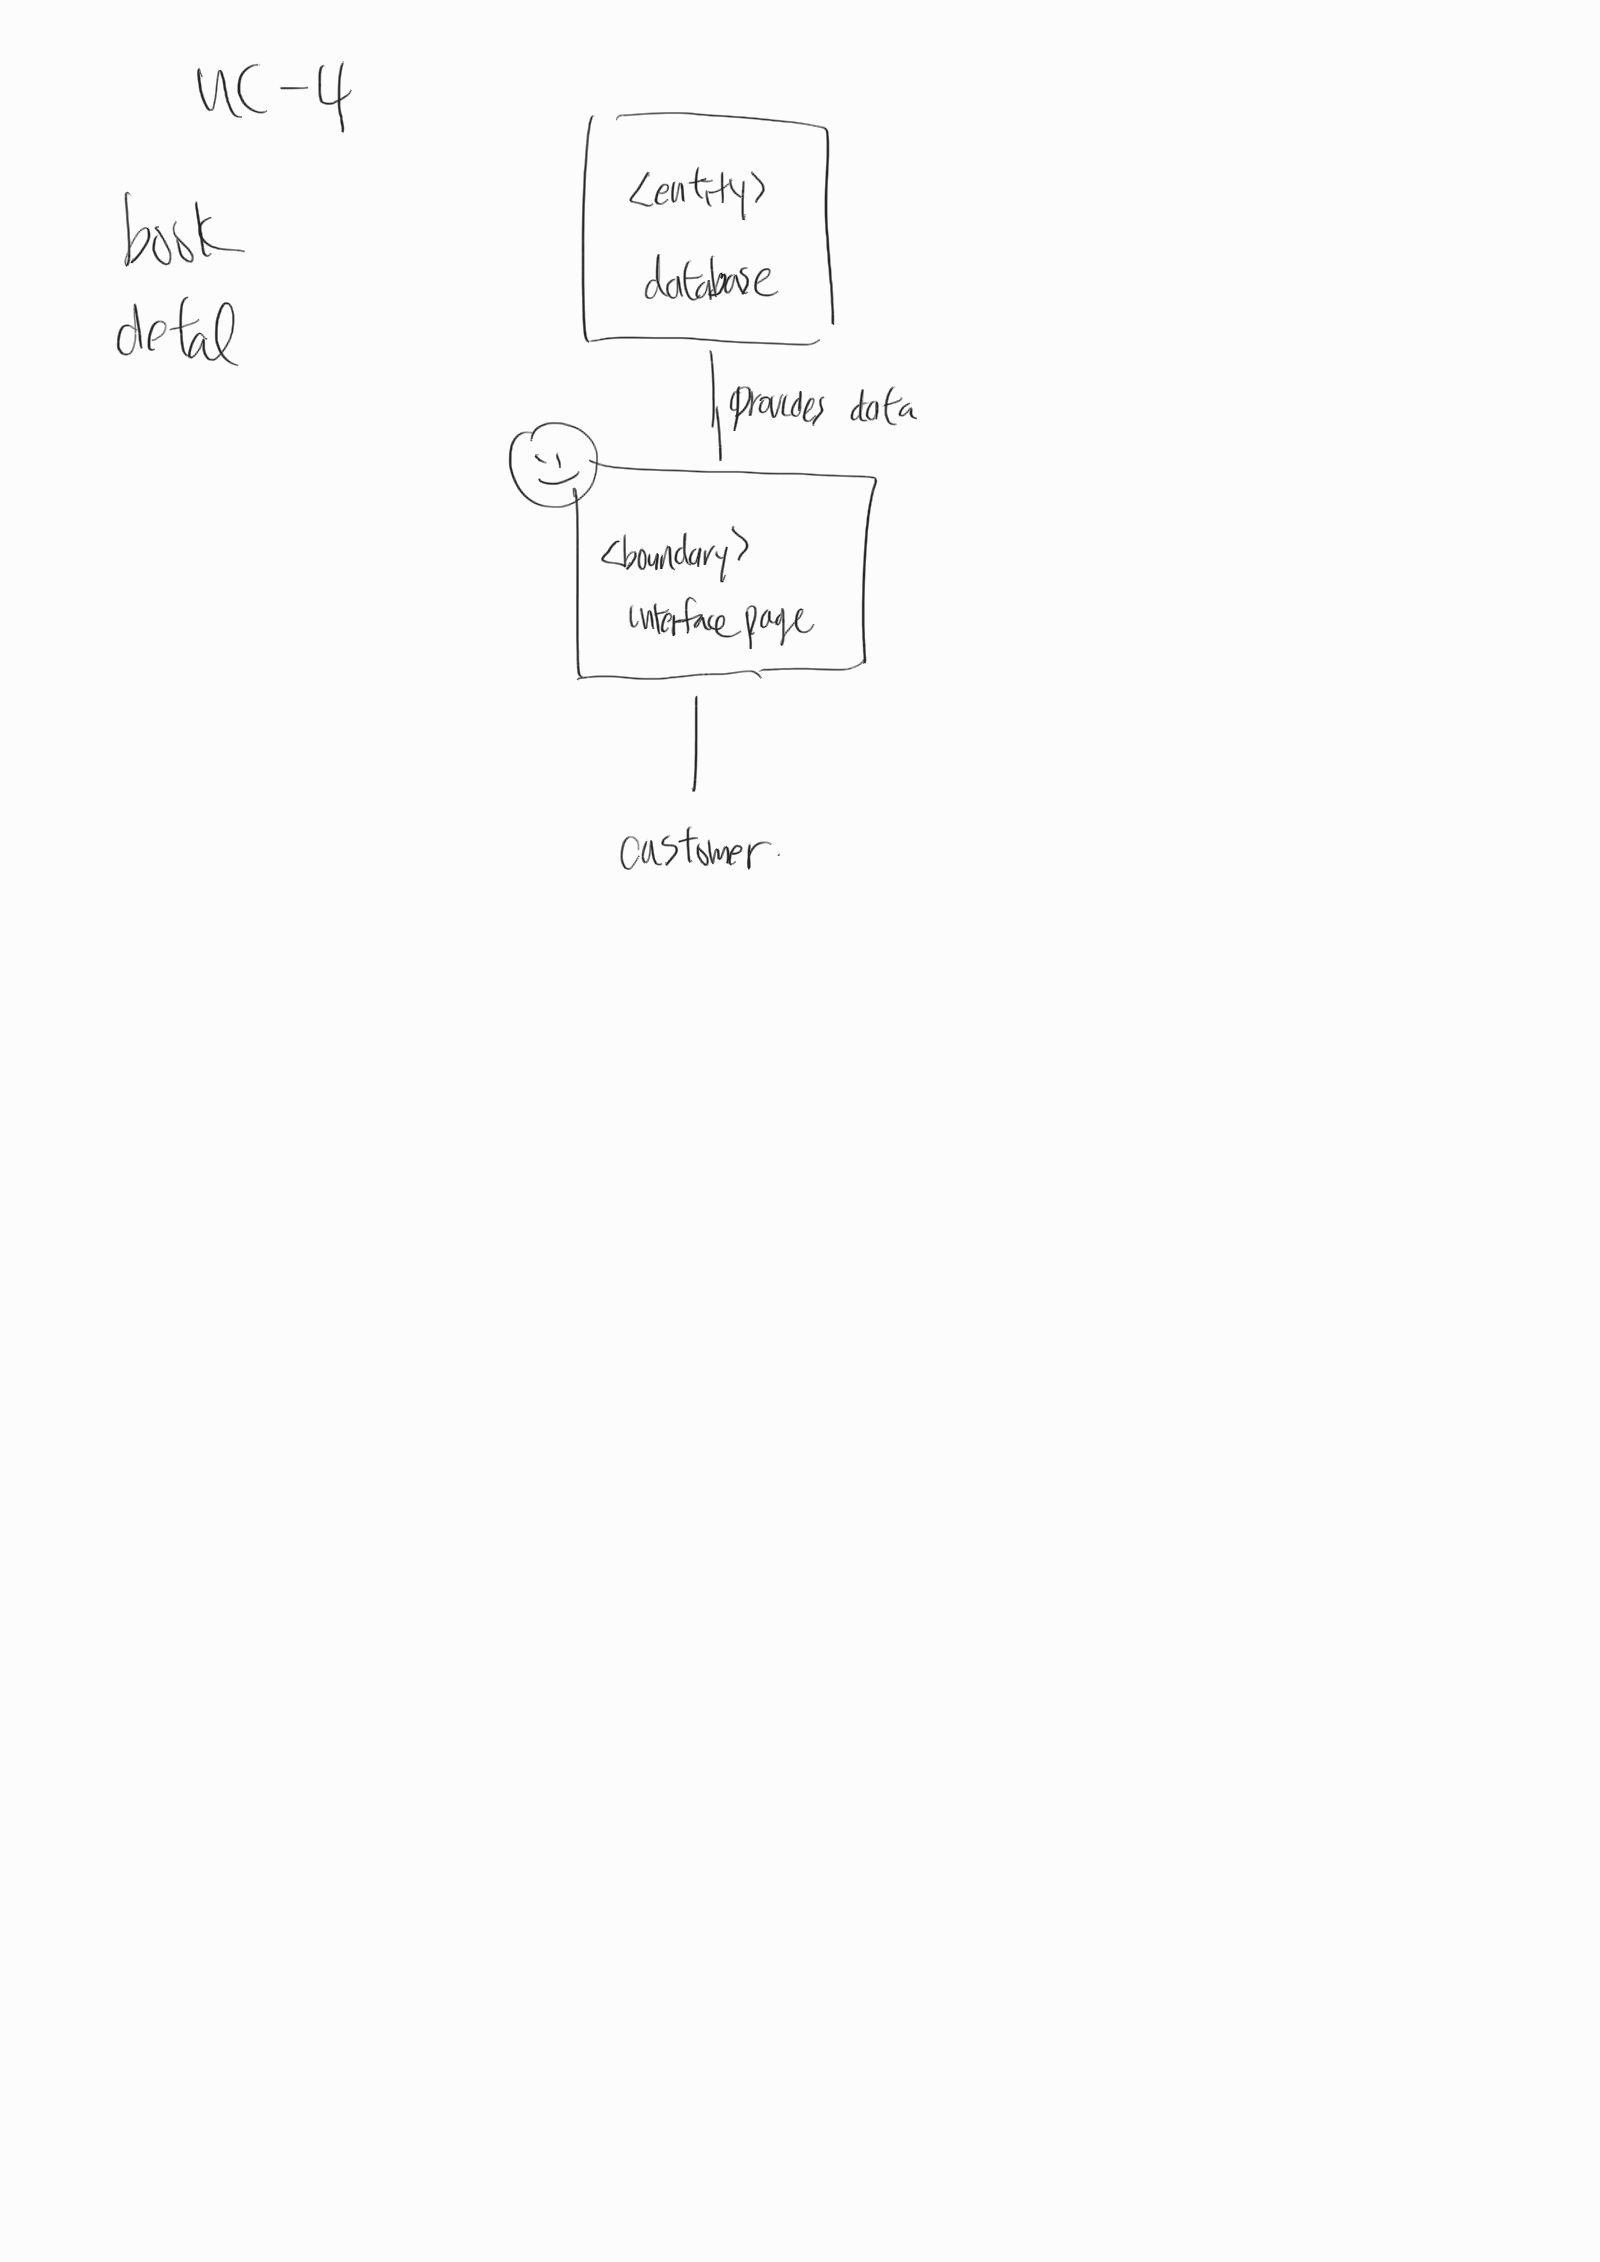 UC-4
book
detal
<entity>
database
provides data
<boundary>
interface page
customer.